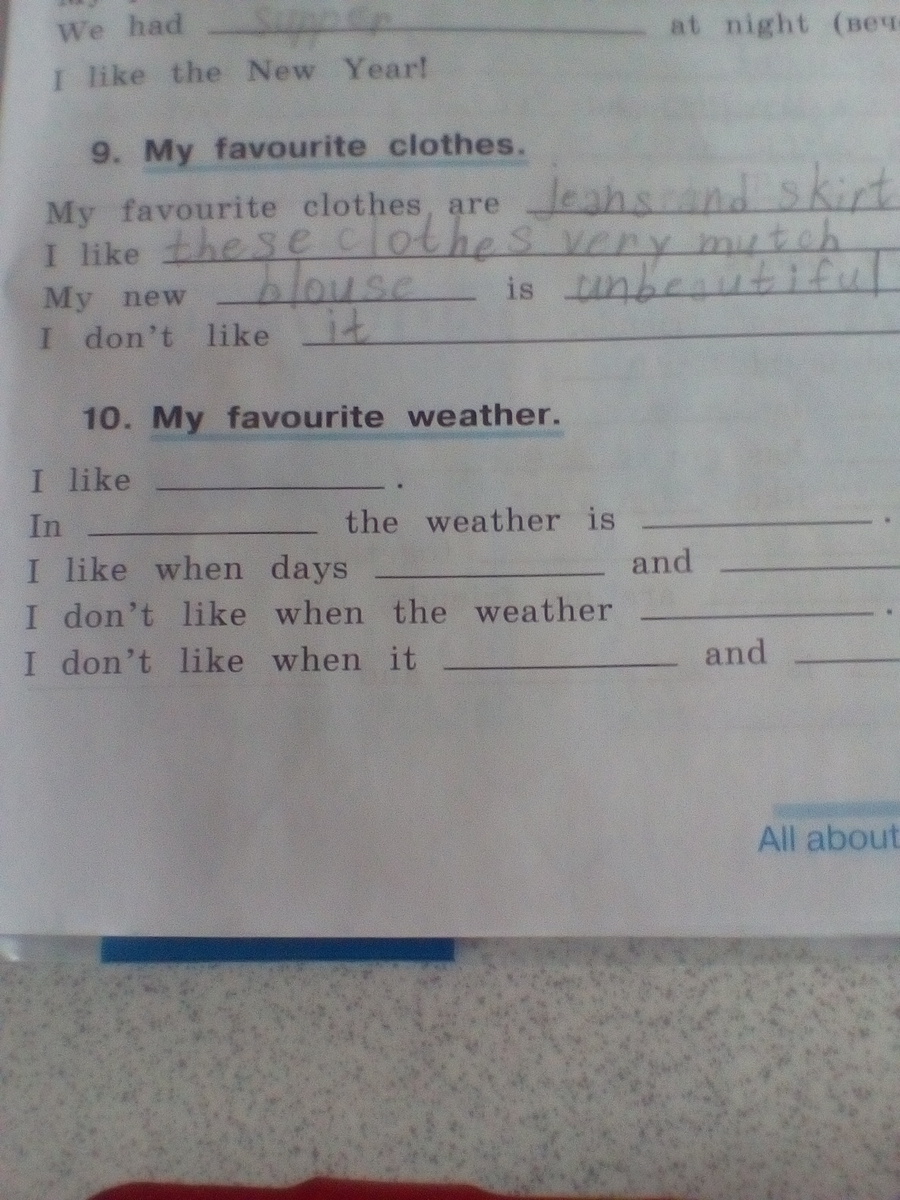 We had supper at night (веч
I like the New Year!
9. My favourite clothes.
My favourite clothes are jeans and skirt
I like these clothes very mutch
My new blouse is unbeautiful
I don't like it
10. My favourite weather.
I like ________ .
In ________ the weather is ________ .
I like when days ________ and ________
I don't like when the weather ________ .
I don't like when it ________ and ________
All about